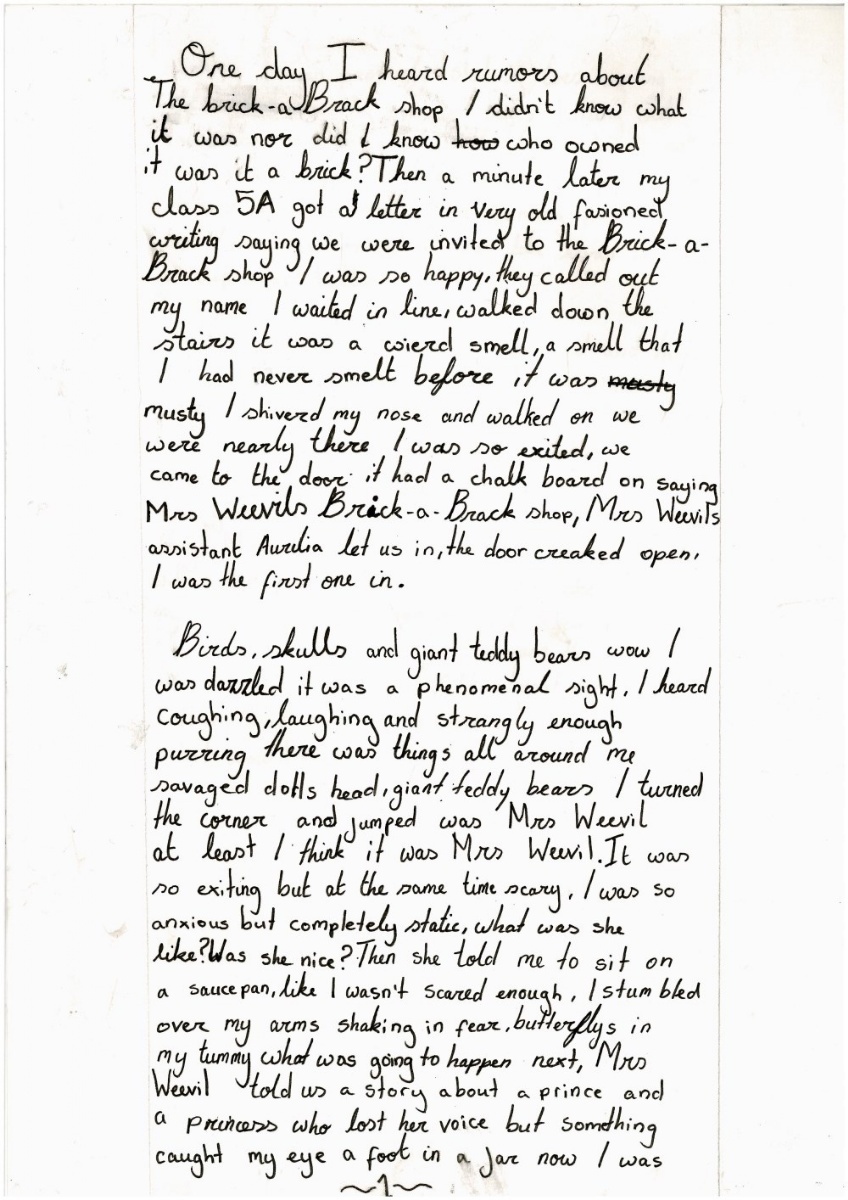 One day I heard rumors about
The brick-a Brack shop I didn't know what
it was nor did I know how who owned
it was it a brick? Then a minute later my
class 5A got a letter in very old fasioned
writing saying we were invited to the Brick-a-
Brack shop I was so happy, they called out
my name I waited in line, walked down the
stairs it was a wierd smell, a smell that
I had never smelt before it was musty
musty I shiverd my nose and walked on we
were nearly there I was so exited, we
came to the door it had a chalk board on saying
Mrs Weevils Brick-a-Brack shop, Mrs Weevils
assistant Aurelia let us in, the door creaked open,
I was the first one in.
Birds, skulls and giant teddy bears wow I
was dazzled it was a phenomenal sight, I heard
coughing, laughing and strangly enough
purring there was things all around me
savaged dolls head, giant teddy bears I turned
the corner and jumped was Mrs Weevil
at least I think it was Mrs Weevil. It was
so exiting but at the same time scary, I was so
anxious but completely static, what was she
like? Was she nice? Then she told me to sit on
a saucepan, like I wasn't scared enough, I stumbled
over my arms shaking in fear, butterflys in
my tummy what was going to happen next, Mrs
Weevil told us a story about a prince and
a princess who lost her voice but something
caught my eye a foot in a jar now I was
~1~